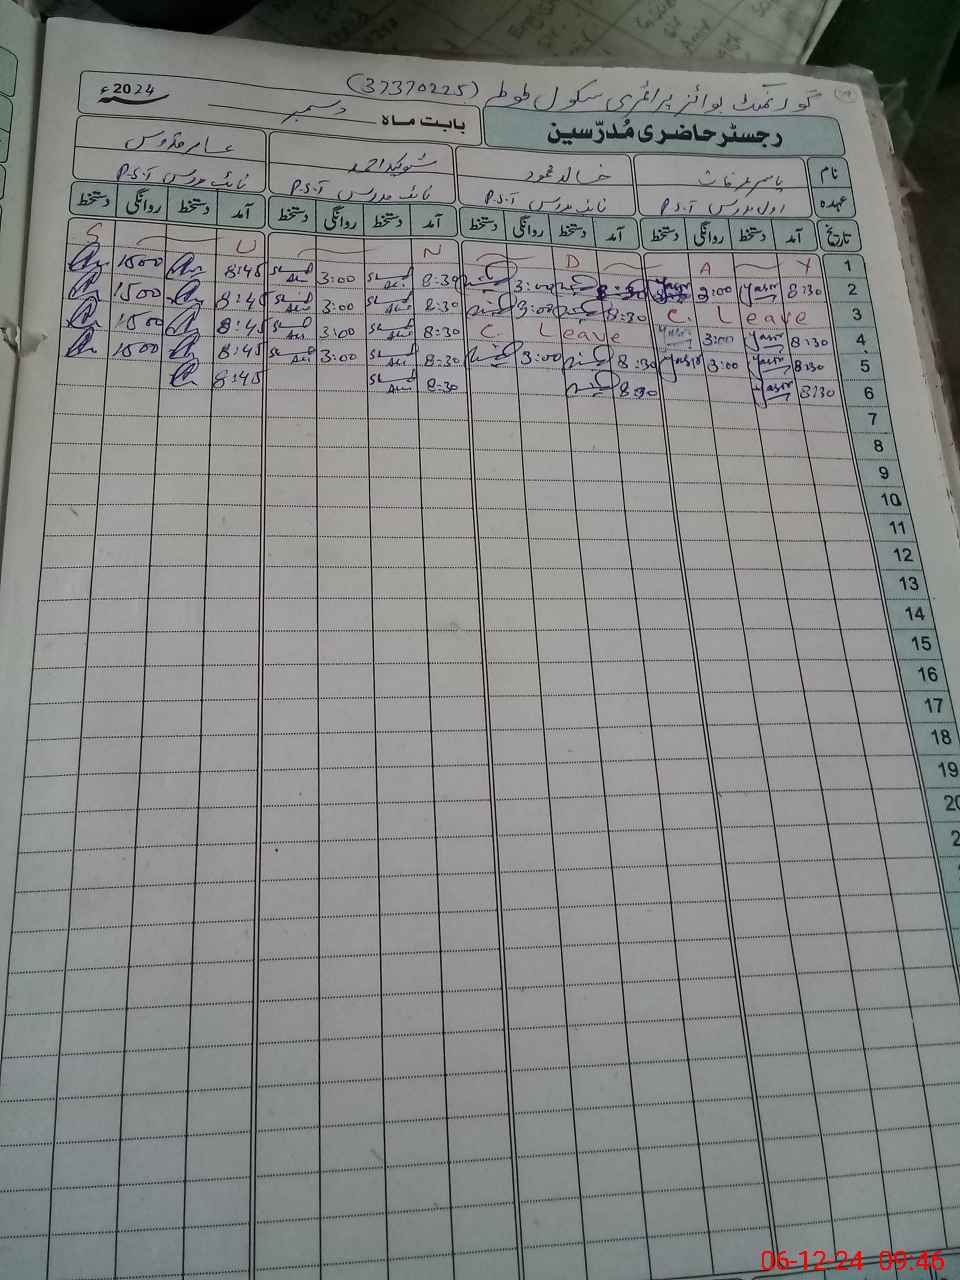 گورنمنٹ بوائز پرائمری سکول طوطہ (37370225)
رجسٹر حاضری مُدرّسین بابت ماہ دسمبر سنہ 2024ء
نام یاسر عرفات خالد محمود شوکت احمد عامر قدوس
عہدہ اول مدرس P.S.T نائب مدرس P.S.T نائب مدرس P.S.T نائب مدرس P.S.T
تاریخ آمد دستخط روانگی دستخط آمد دستخط روانگی دستخط آمد دستخط روانگی دستخط آمد دستخط روانگی دستخط
1 S U N D A Y
2 8:30 Yasir 3:00 Yasir 8:30 3:00 8:30 3:00 8:45 1500
3 C. Leave 8:30 3:00 8:30 3:00 8:45 1500
4 8:30 Yasir 3:00 Yasir C. Leave 8:30 3:00 8:45 1500
5 8:30 Yasir 3:00 Yasir 8:30 3:00 8:30 3:00 8:45 1500
6 8:30 Yasir 8:30 8:30 8:45
7
8
9
10
11
12
13
14
15
16
17
18
19
20
06-12-24 09:46